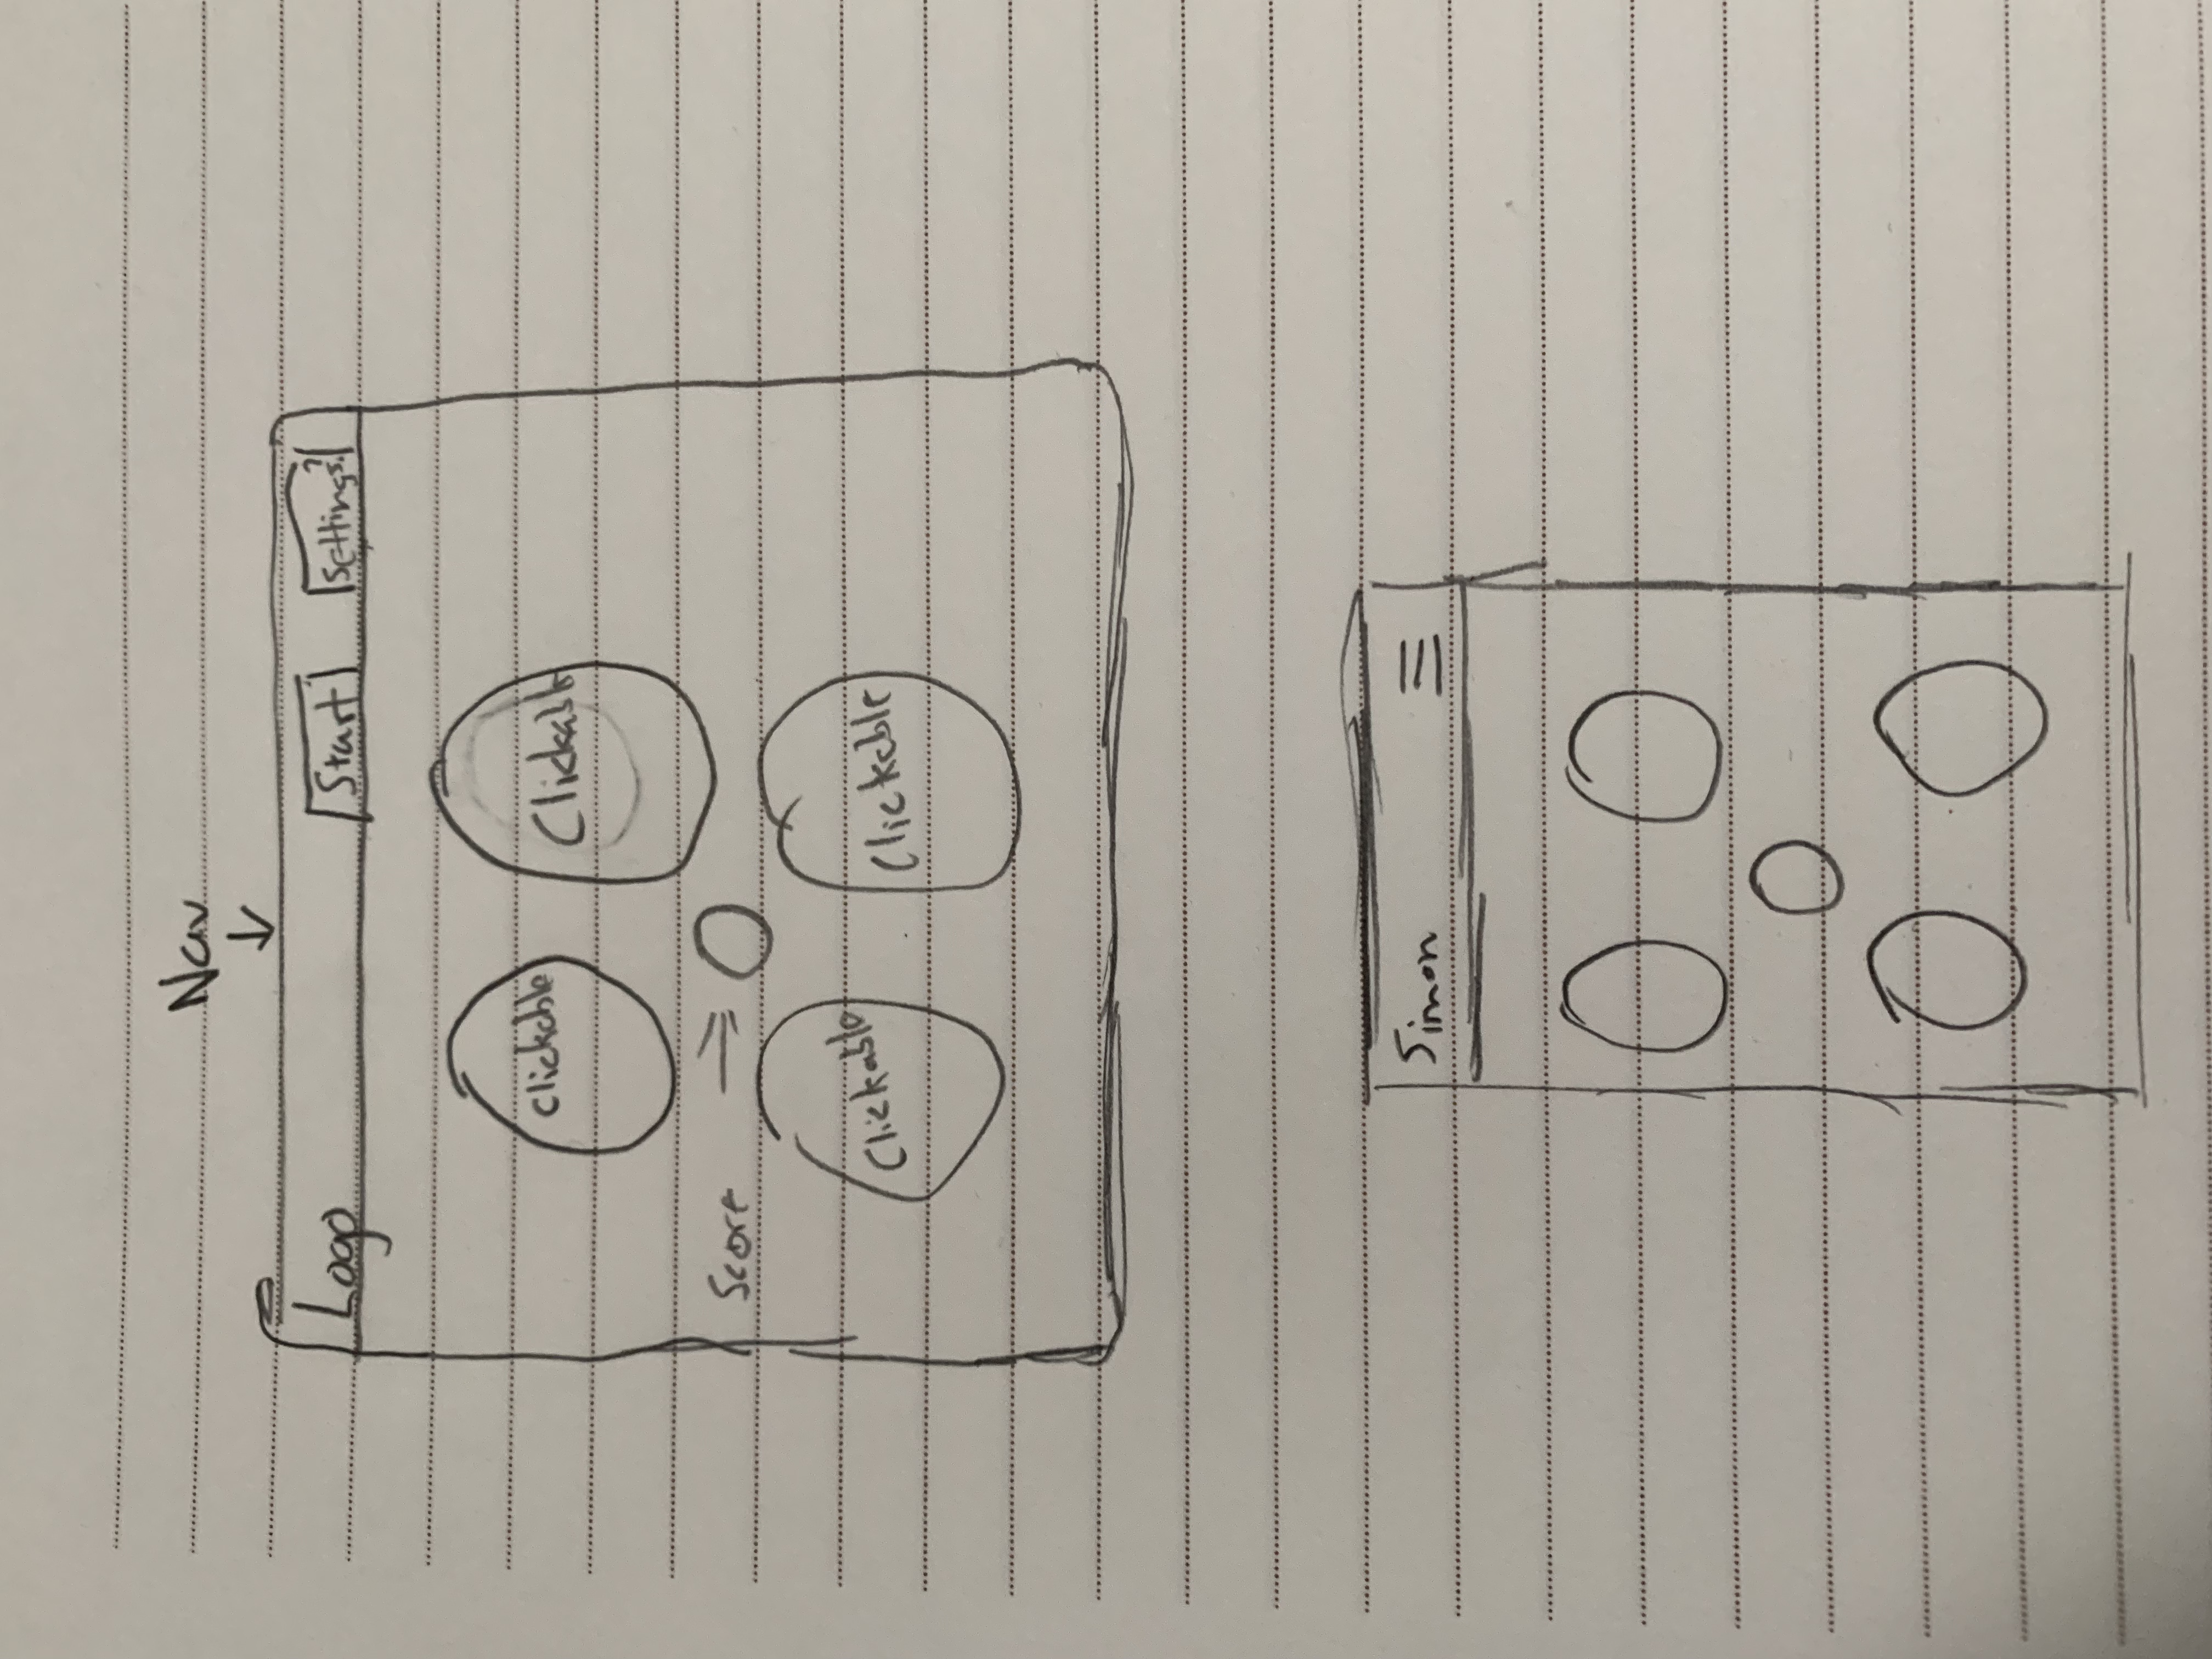 Nav
Logo Start Settings?
Clickable Clickable
Score
Clickable Clickable
Simon